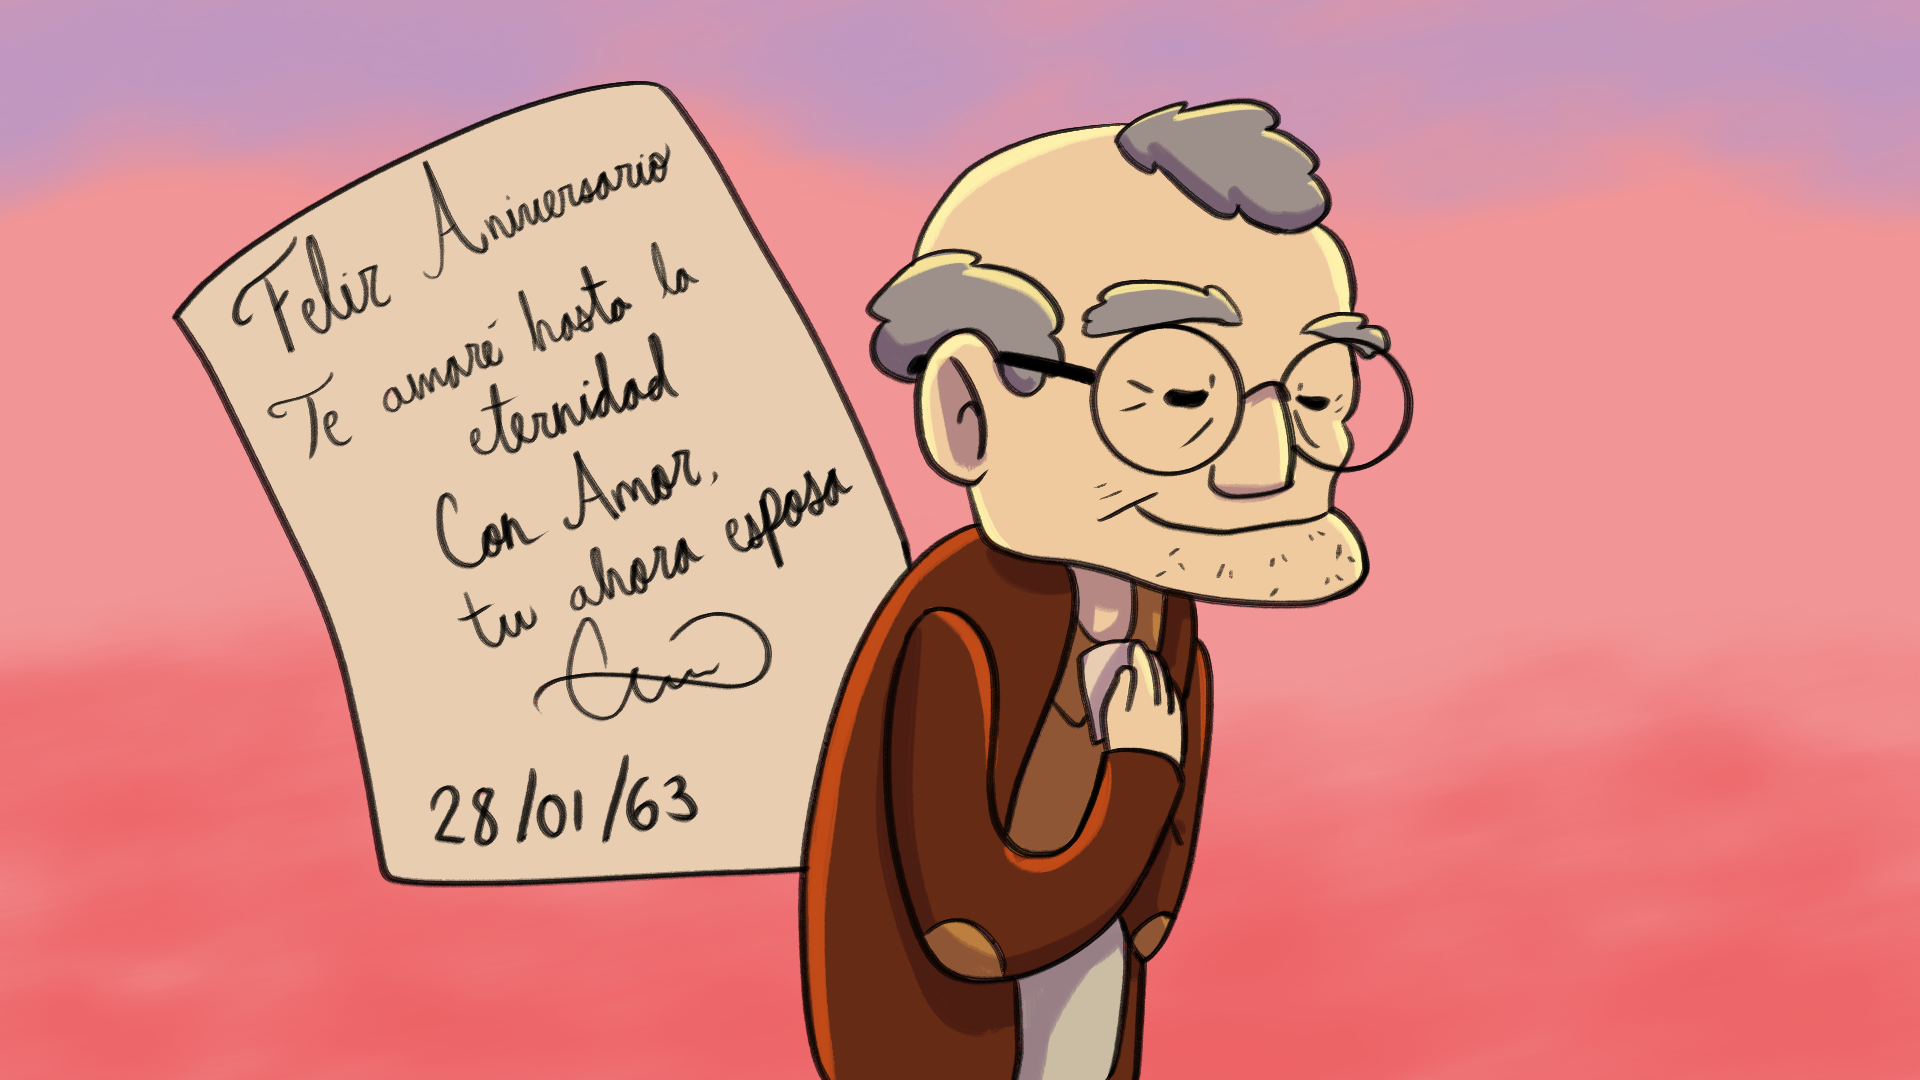 Feliz Aniversario
Te amaré hasta la
eternidad
Con Amor,
tu ahora esposa
28/01/63